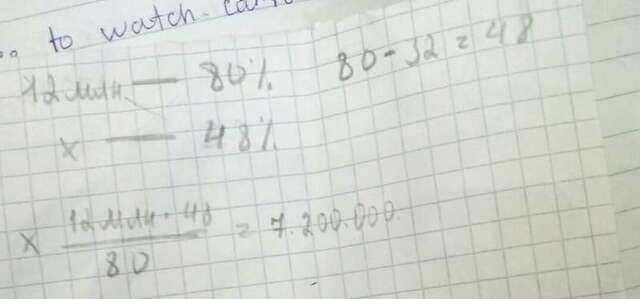 to watch.
12 млн — 80% 80 - 32 = 48
x — 48%
x 12 млн · 48 / 80 = 7.200.000.